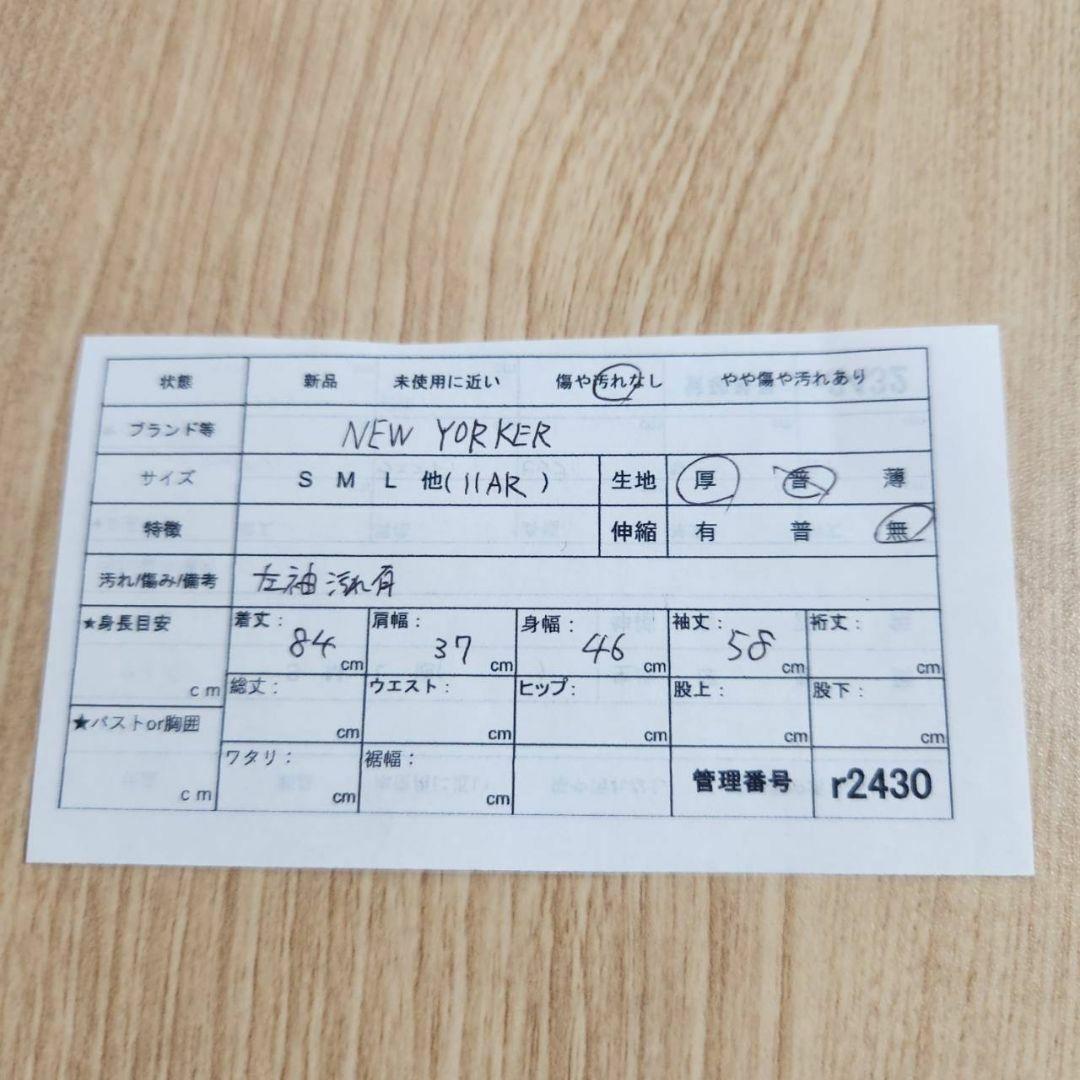 状態 新品 未使用に近い 傷や汚れなし やや傷や汚れあり
ブランド等 NEW YORKER
サイズ S M L 他(11AR) 生地 厚 普 薄
特徴 伸縮 有 普 無
汚れ/傷み/備考 左袖 汚れ有
★身長目安 cm
着丈: 84 cm 肩幅: 37 cm 身幅: 46 cm 袖丈: 58 cm 裄丈: cm
総丈: cm ウエスト: cm ヒップ: cm 股上: cm 股下: cm
★バストor胸囲 cm
ワタリ: cm 裾幅: cm 管理番号 r2430